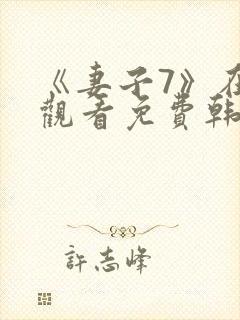 《妻子7》在
觀看免費韩
許志峰